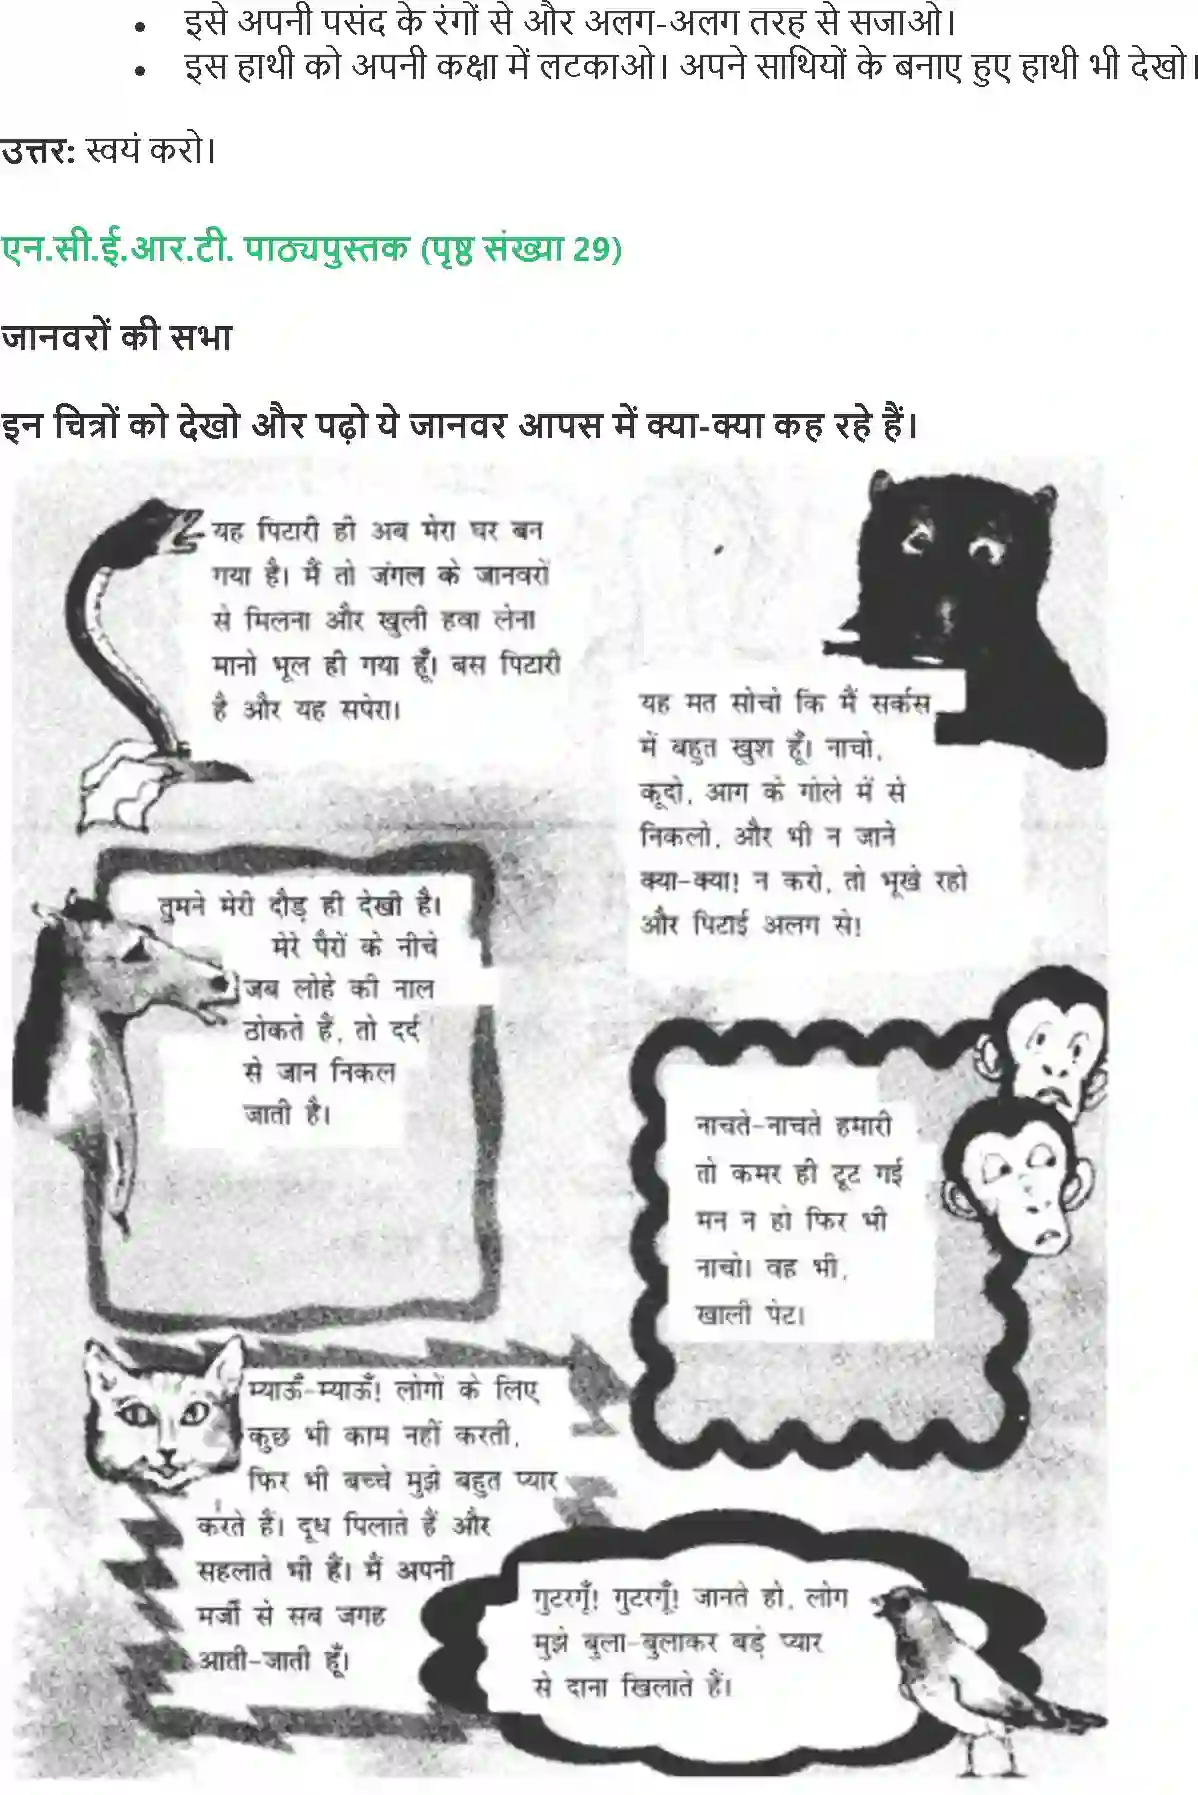 • इसे अपनी पसंद के रंगों से और अलग-अलग तरह से सजाओ।
• इस हाथी को अपनी कक्षा में लटकाओ। अपने साथियों के बनाए हुए हाथी भी देखो।
उत्तर: स्वयं करो।
एन.सी.ई.आर.टी. पाठ्यपुस्तक (पृष्ठ संख्या 29)
जानवरों की सभा
इन चित्रों को देखो और पढ़ो ये जानवर आपस में क्या-क्या कह रहे हैं।
यह पिटारी ही अब मेरा घर बन
गया है। मैं तो जंगल के जानवरों
से मिलना और खुली हवा लेना
मानो भूल ही गया हूँ। बस पिटारी
है और यह सपेरा।
यह मत सोचो कि मैं सर्कस
में बहुत खुश हूँ। नाचो,
कूदो, आग के गोले में से
निकलो, और भी न जाने
क्या-क्या! न करो, तो भूखे रहो
और पिटाई अलग से!
तुमने मेरी दौड़ ही देखी है।
मेरे पैरों के नीचे
जब लोहे की नाल
ठोकते हैं, तो दर्द
से जान निकल
जाती है।
नाचते-नाचते हमारी
तो कमर ही टूट गई
मन न हो फिर भी
नाचो। वह भी,
खाली पेट।
म्याऊँ-म्याऊँ! लोगों के लिए
कुछ भी काम नहीं करती,
फिर भी बच्चे मुझे बहुत प्यार
करते हैं। दूध पिलाते हैं और
सहलाते भी हैं। मैं अपनी
मर्जी से सब जगह
आती-जाती हूँ।
गुटरगूँ! गुटरगूँ! जानते हो, लोग
मुझे बुला-बुलाकर बड़े प्यार
से दाना खिलाते हैं।